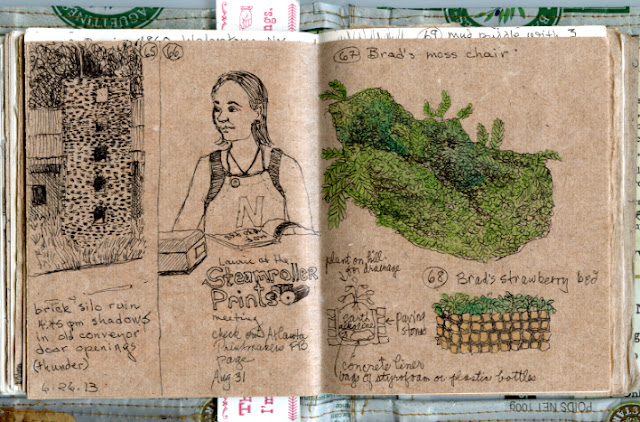 65
brick silo ruin
4:45 pm shadows
in old conveyor
door openings
(thunder)
6.26.13
66
N
Laurie at the
Steamroller
Prints
meeting
check out Atlanta
Printmakers FB
page
Aug 31
69 mud puddle with 3
67 Brad's moss chair
plant on hill
for drainage
paving
stones
concrete liner
bags of styrofoam or plastic bottles
68 Brad's strawberry bed
POIDS NET 100g